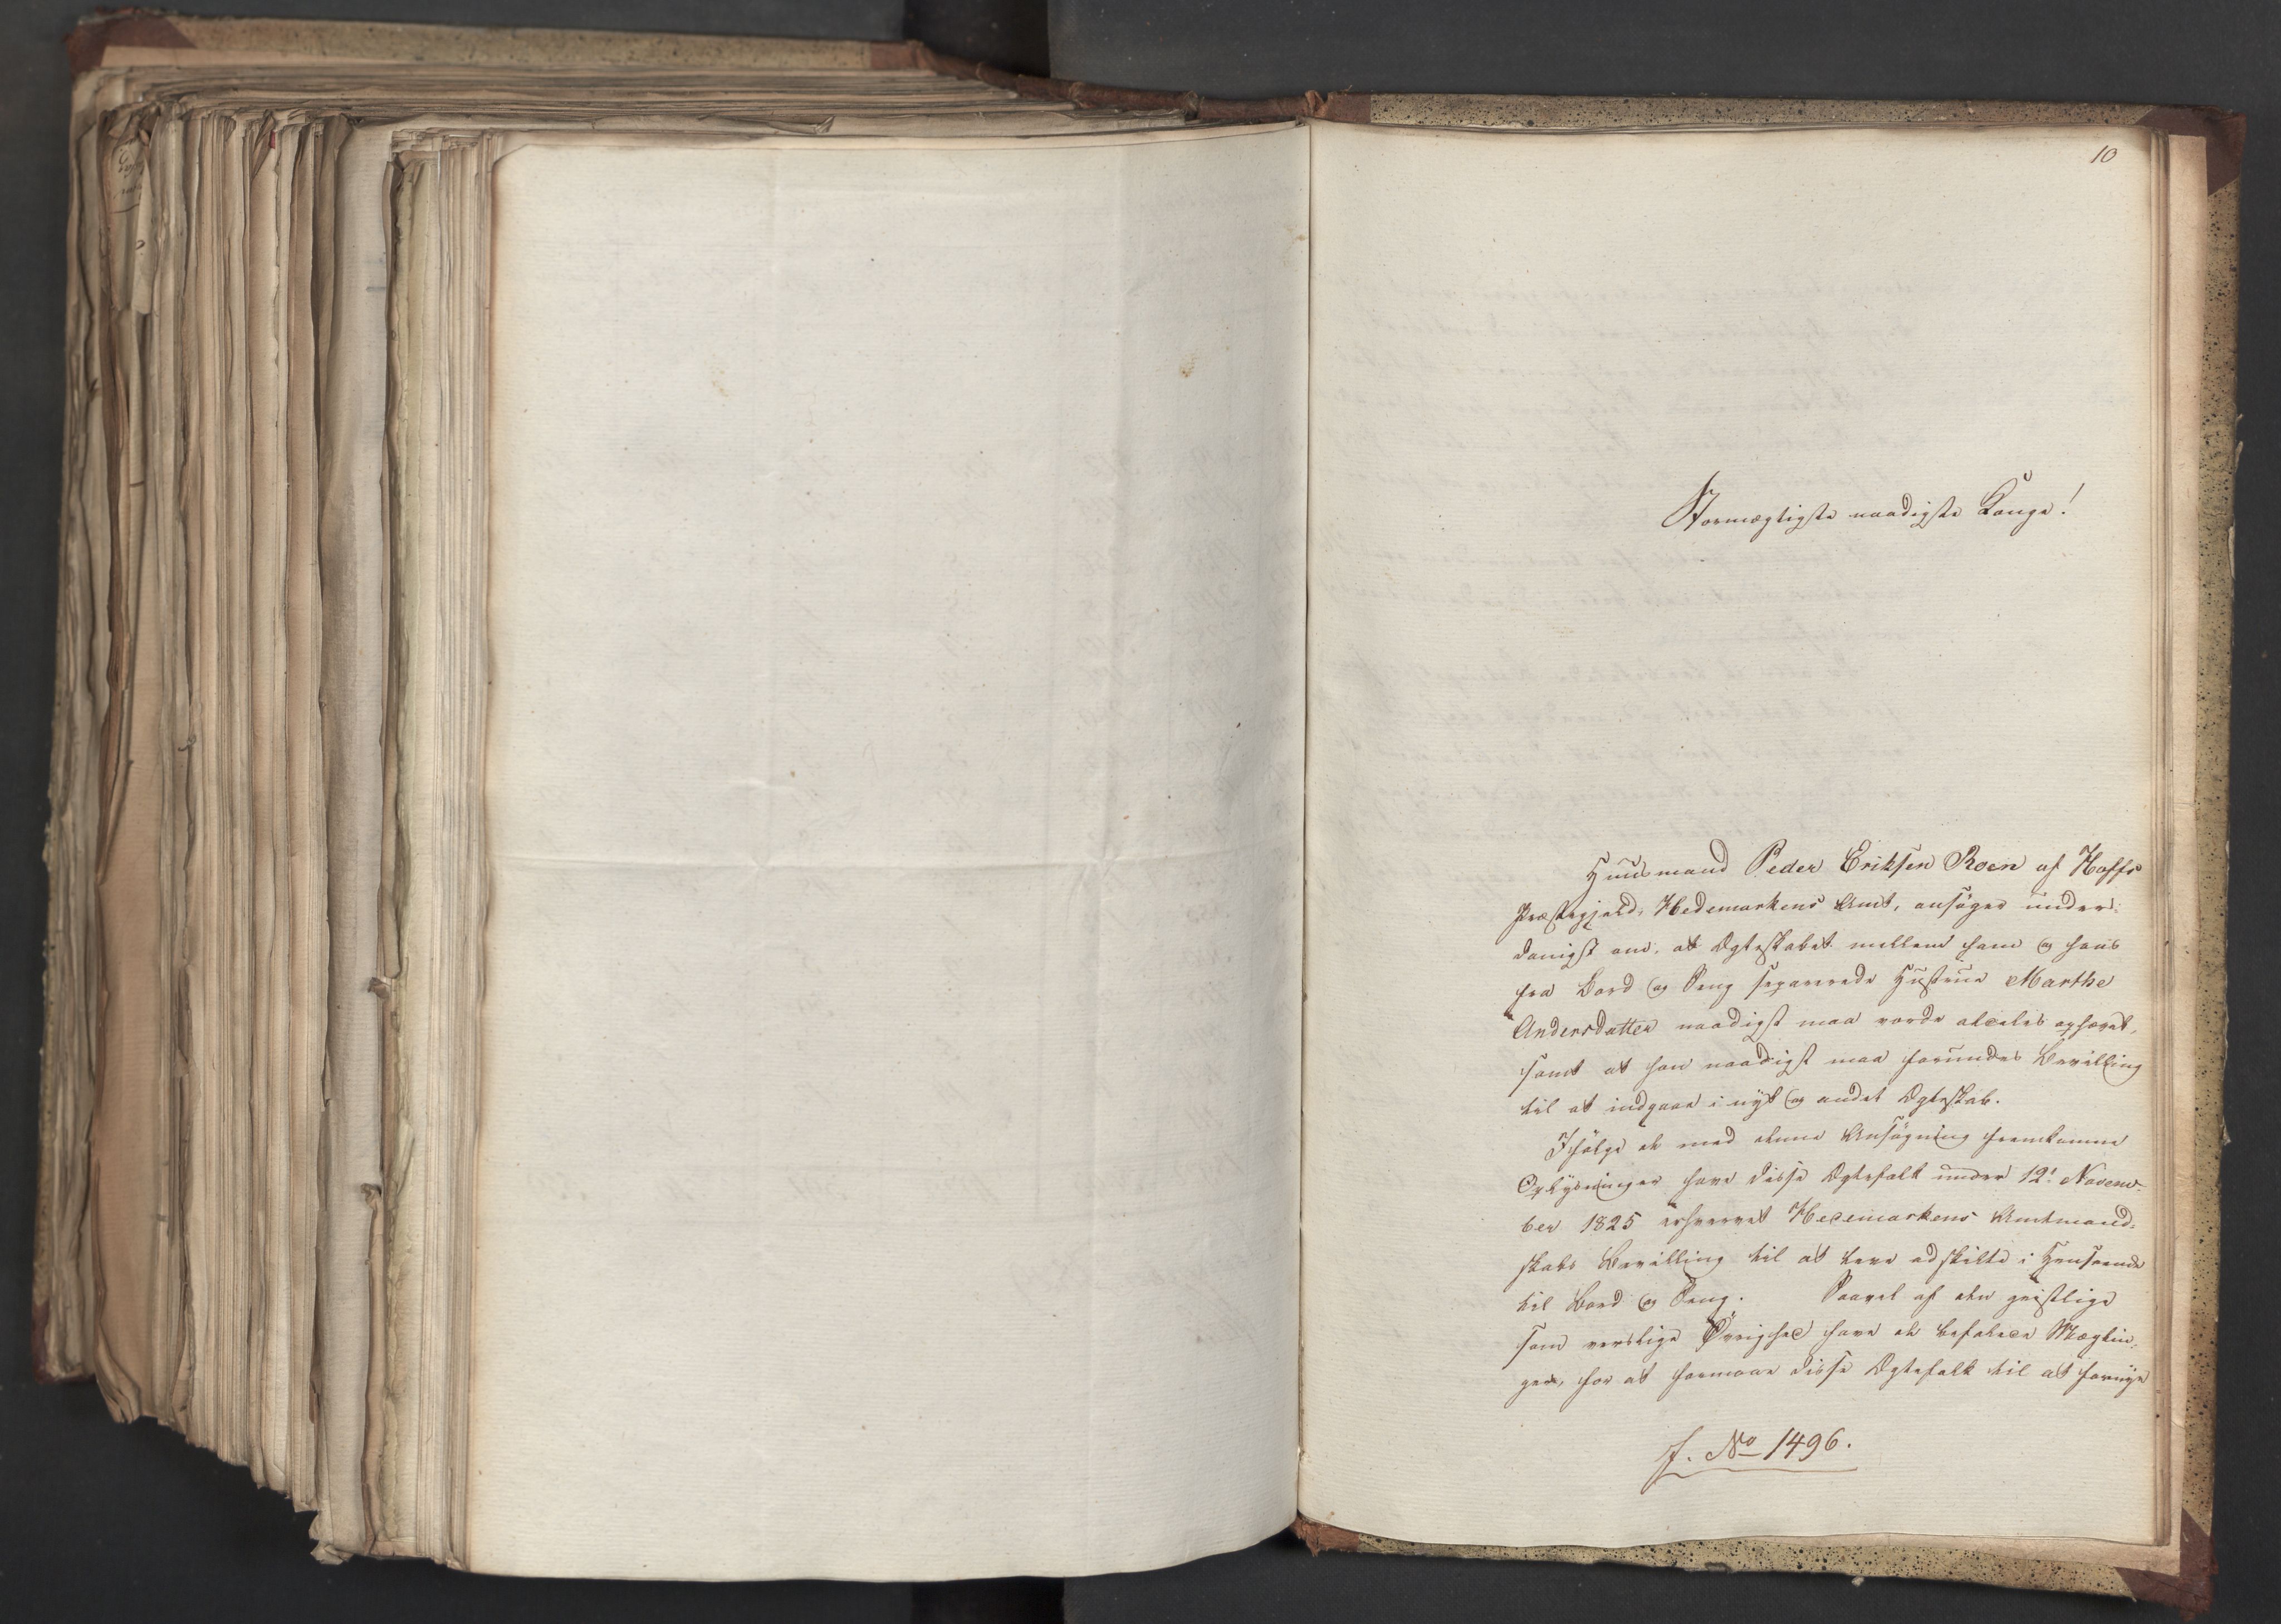 10
Stormægtigste naadigste Konge!
Huusmand Peder Eriksen Roen af Hoffs
Præstegjeld, Hedemarkens Amt, ansøger under-
danigst om, at Ægteskabet mellem ham og hans
fra Bord og Seng separerede Hustrue Marthe
Andersdatter naadigst maa vorde aldeles ophævet,
samt at han naadigst maa forundes Bevilling
til at indgaae i nyt og andet Ægteskab.
Ifølge de med denne Ansøgning fremkomne
Oplysninger have disse Ægtefolk under 12te Novem-
ber 1825 erhvervet Hedemarkens Amtmand-
skabs Bevilling til at leve adskilte i Henseende
til Bord og Seng. Saavel af den geistlige
som verdslige Øvrighed have de befalede Mæglin-
ger, for at formaae disse Ægtefolk til at fornye
J. No 1496.